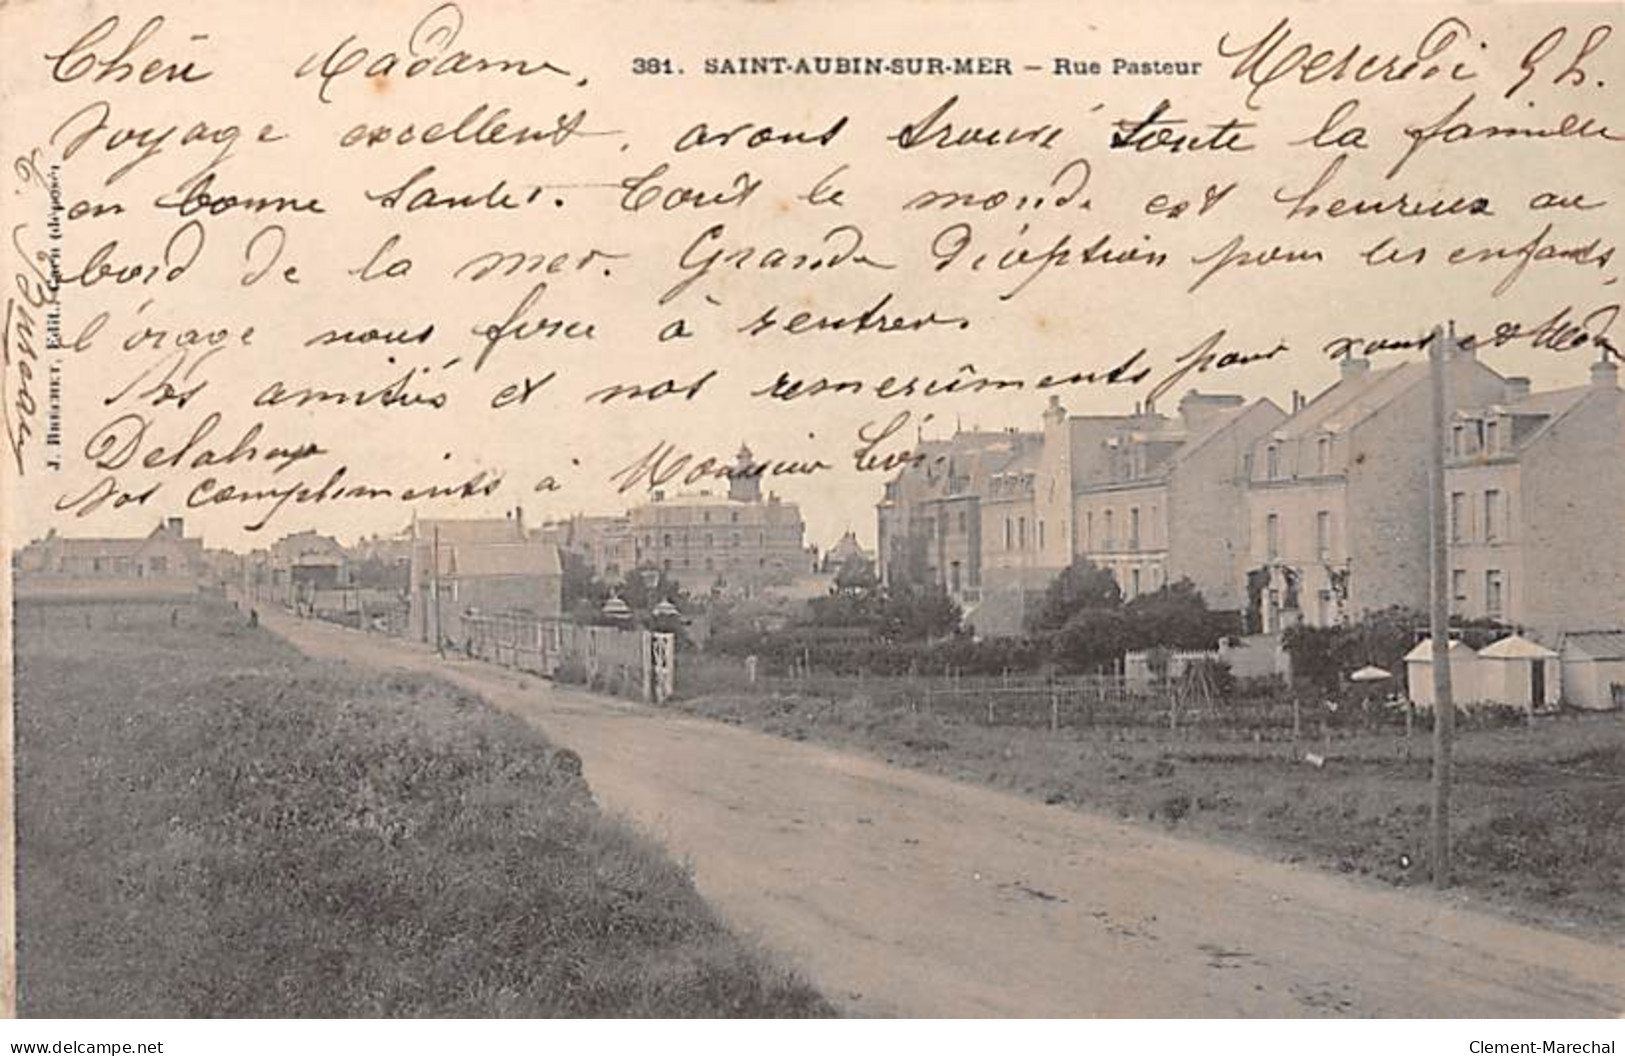 381. SAINT-AUBIN-SUR-MER – Rue Pasteur
Chère Madame, Mercredi 9 h.
Voyage excellent, avons trouvé toute la famille
en bonne santé. Tout le monde est heureux au
bord de la mer. Grande déception pour les enfants,
l'orage nous force à rentrer.
Nos amitiés et nos remerciments pour vous et Mme
Delahaye
Nos compliments à Monsieur
J. Edit., Caen (déposé)
delcampe.net
Clement-Marechal